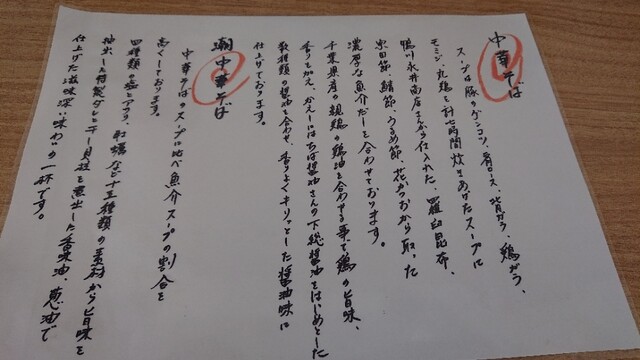 中華そば
スープは豚のゲンコツ、肩ロース、背ガラ、鶏ガラ、
モミジ、丸鶏を計七時間炊きあげたスープに
鴨川永井商店さんから仕入れた、羅臼昆布、
宗田節、鯖節、うるめ節、花かつおから取った
濃厚な魚介だしを合わせております。
千葉県産の親鶏の鶏油を合わせる事で鶏の旨味、
香りを加え、かえしにはちば醤油さんの下総醤油をはじめとした
数種類の醤油を合わせ、香りよくキリッとした醤油味に
仕上げております。
潮中華そば
中華そばのスープに比べ魚介スープの割合を
高くしております。
四種類の塩とアサリ、牡蠣など十三種類の素材から旨味を
抽出した特製ダレと干し貝柱を煮出した香味油、葱油で
仕上げた滋味深い味わいの一杯です。